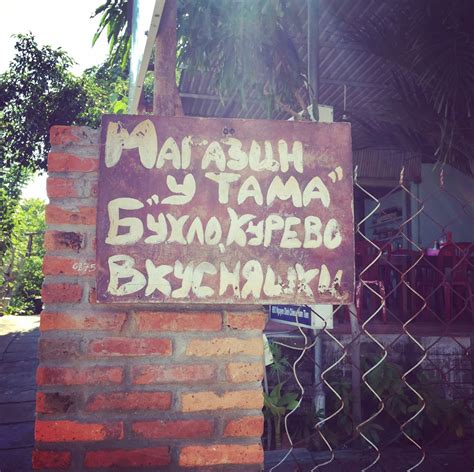 Магазин
"У Тама"
Бухло, курево
Вкусняшки